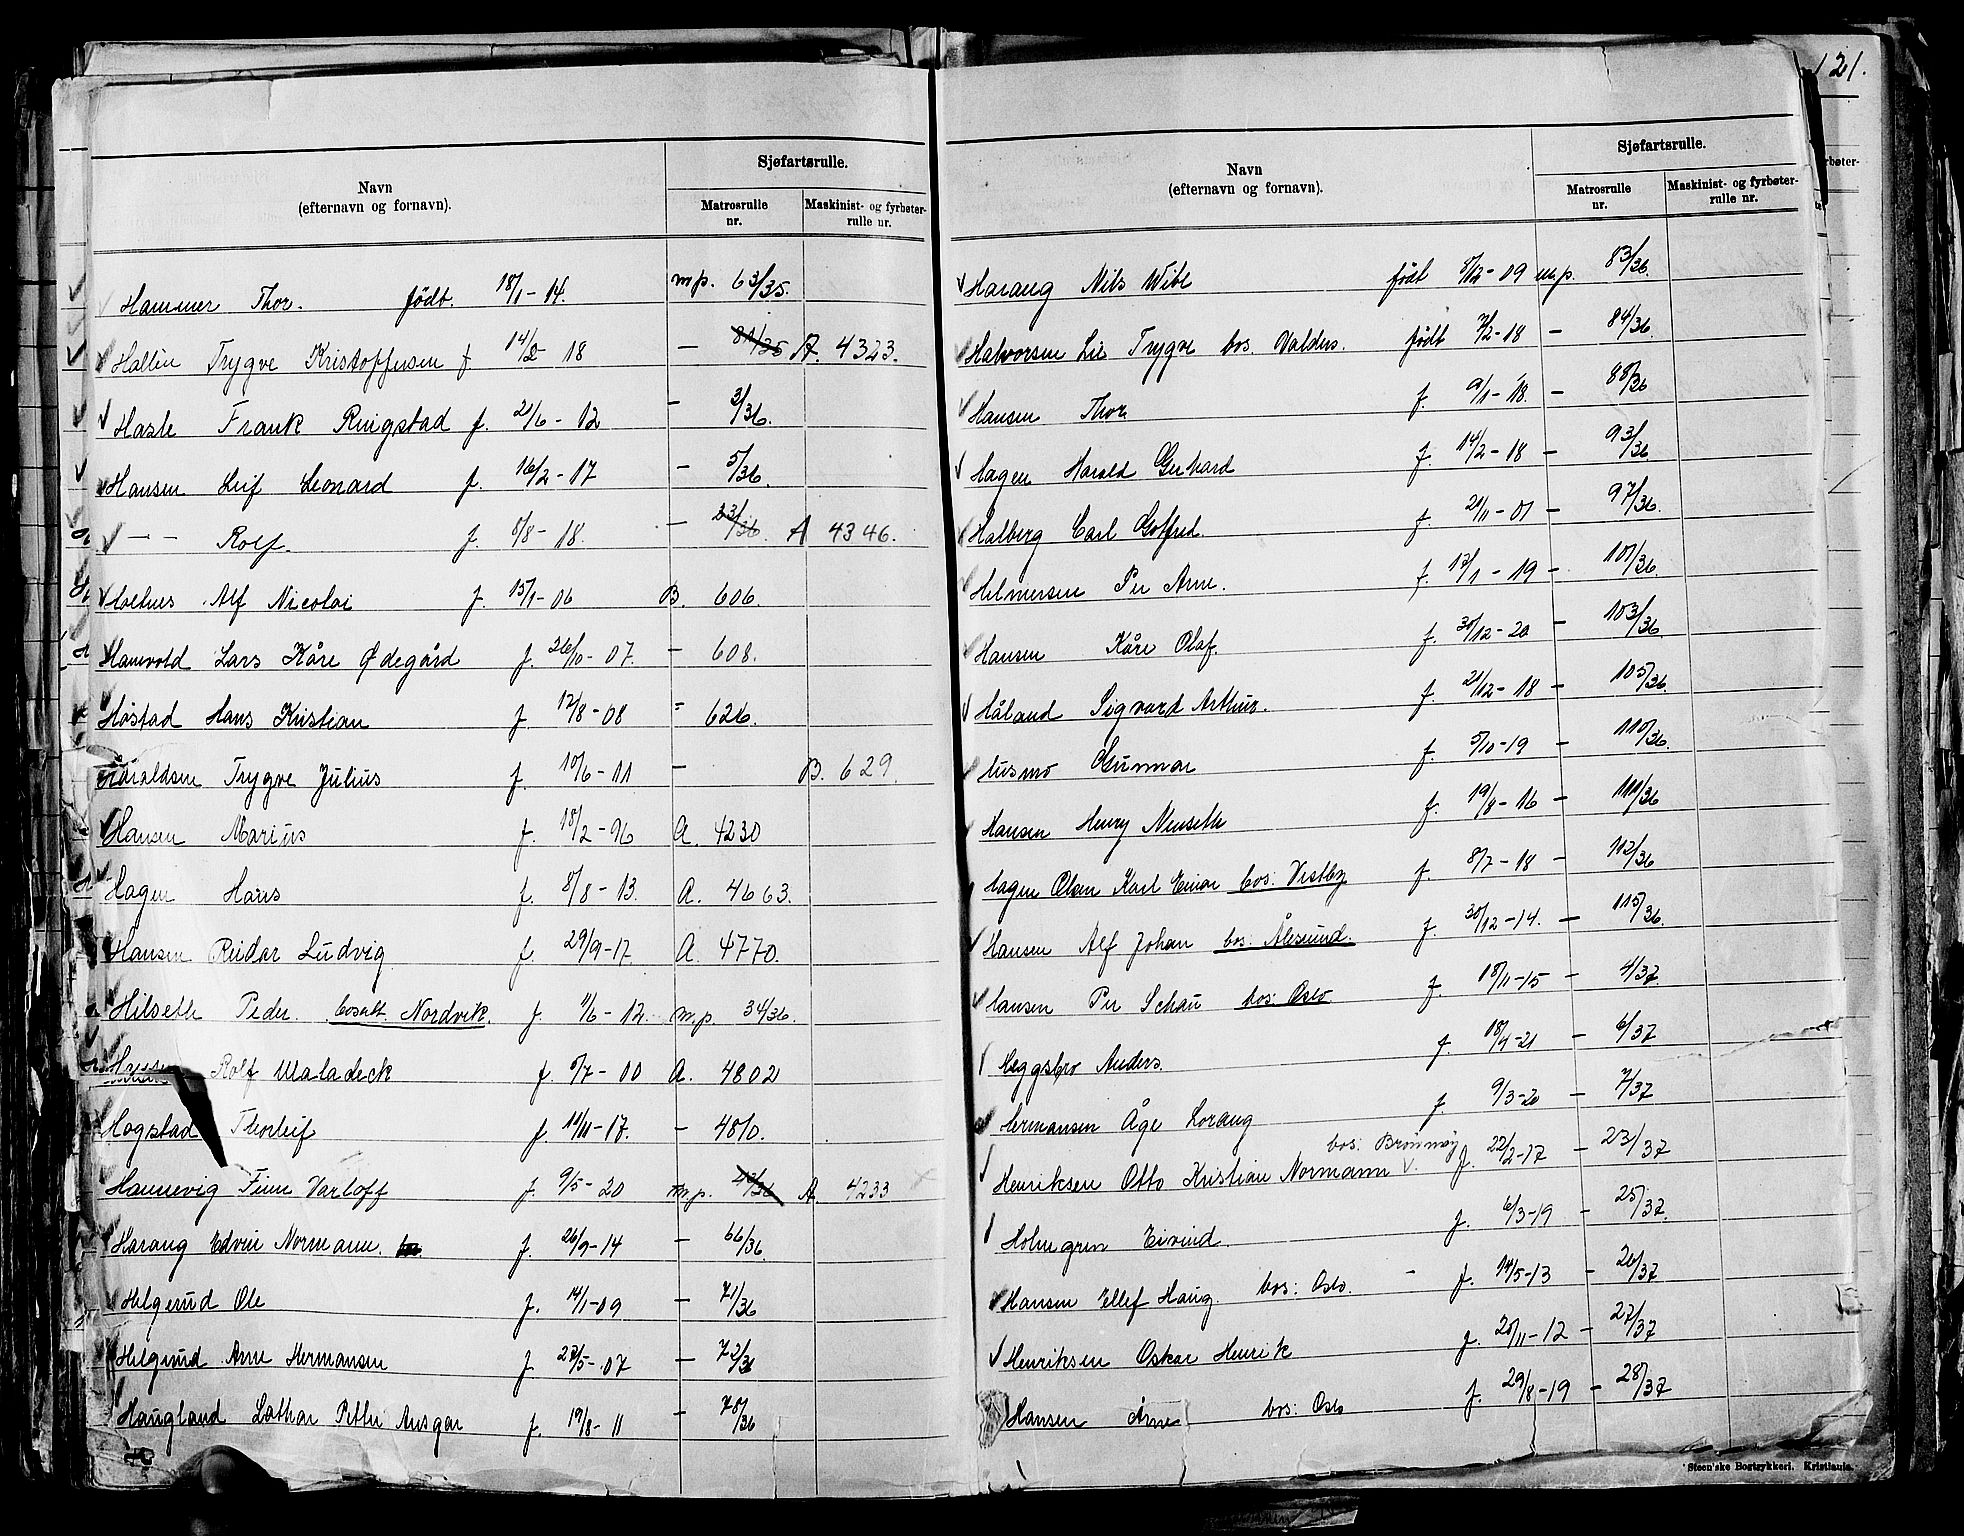 121.
Navn
(efternavn og fornavn).
Sjøfartsrulle.
Matrosrulle nr.
Maskinist- og fyrbøter-rulle nr.
Hammer Thor. født. 18/1-14. m.p. 63/35.
Hallin Trygve Kristoffersen f 14/2-18 — 81/35 A. 4323.
Hasle Frank Ringstad f. 21/6-12 — 3/36.
Hansen Leif Leonard f. 16/2-17 — 5/36.
— — Rolf. f. 8/8-18. — 23/36. A 4346.
Holtnes Alf Nicolai f. 15/1-06 B. 606.
Hanevold Lars Kåre Ødegård f. 26/10-07. — 608.
Høstad Hans Kristian f 12/8-08 = 626.
Haraldsen Trygve Julius f. 10/6-11 — B. 629.
Hansen Marius f. 18/2-96 A. 4230
Hagen Hans f. 8/8-13. A. 4663.
Hansen Reidar Ludvig f. 29/9-17. A. 4770.
Hilseth Peder. bosatt. Nordvik. f 1/6-12. m.p. 34/36.
Hansen Rolf Maladeck f. 5/7-00 A. 4802
Hogstad Thorleif f. 11/11-17. — 4810.
Hannevig Finn Varloff f. 9/5-20 m.p. 42/36 A. 4233
Harang Edvin Normann. f. 26/9-14 — 66/36.
Helgerud Ole f. 14/1-09 — 71/36
Helgerud Arne Hermansen f 27/5-07 — 72/36
Haugland Lothar Petter Ansgar f. 19/8-11 — 78/36
Navn
(efternavn og fornavn).
Sjøfartsrulle.
Matrosrulle nr.
Maskinist- og fyrbøter-rulle nr.
Harang Nils Wibe født 8/12-09 m.p. 83/36.
Halvorsen Lie Trygve bos. Valders. født 7/2-18 — 84/36
Hansen Thor f. 9/1-18. — 88/36
Hagen Harald Gerhard f. 14/2-18 — 93/36
Halberg Carl Gotfred. f 21/11-01 — 97/36.
Helmersen Per Arne. f. 13/1-19 — 101/36.
Hansen Kåre Olaf. f. 30/12-20 — 103/36
Håland Sigvard Arthur. f. 21/12-18 — 105/36.
Husmo Gunnar f. 5/10-19 — 110/36.
Hansen Henry Nenseth f. 19/8-16 — 111/36
Hagen Olsen Karl Einar bos: Vestby f. 8/7-18 — 112/36
Hansen Alf Johan bos: Ålesund. f. 30/12-14. — 115/36.
Hansen Per Schau bos: Oslo f. 18/11-15 — 4/37
Heggsbro Anders. f. 18/4-21 — 6/37
Hermansen Åge Lorang f. 9/3-20 — 7/37
bos: Brønnøy
Henriksen Otto Kristian Normann f. 22/2-17 — 23/37
Holmgren Eivind. f. 6/3-19 — 25/37.
Hansen Ellef Haug. bos: Oslo. — f. 14/5-13 — 26/37
Henriksen Oskar Henrik f. 20/11-12 — 27/37
Hansen Arne bos: Oslo f. 29/8-19 — 28/37
Steen'ske Bogtrykkeri. Kristiania.